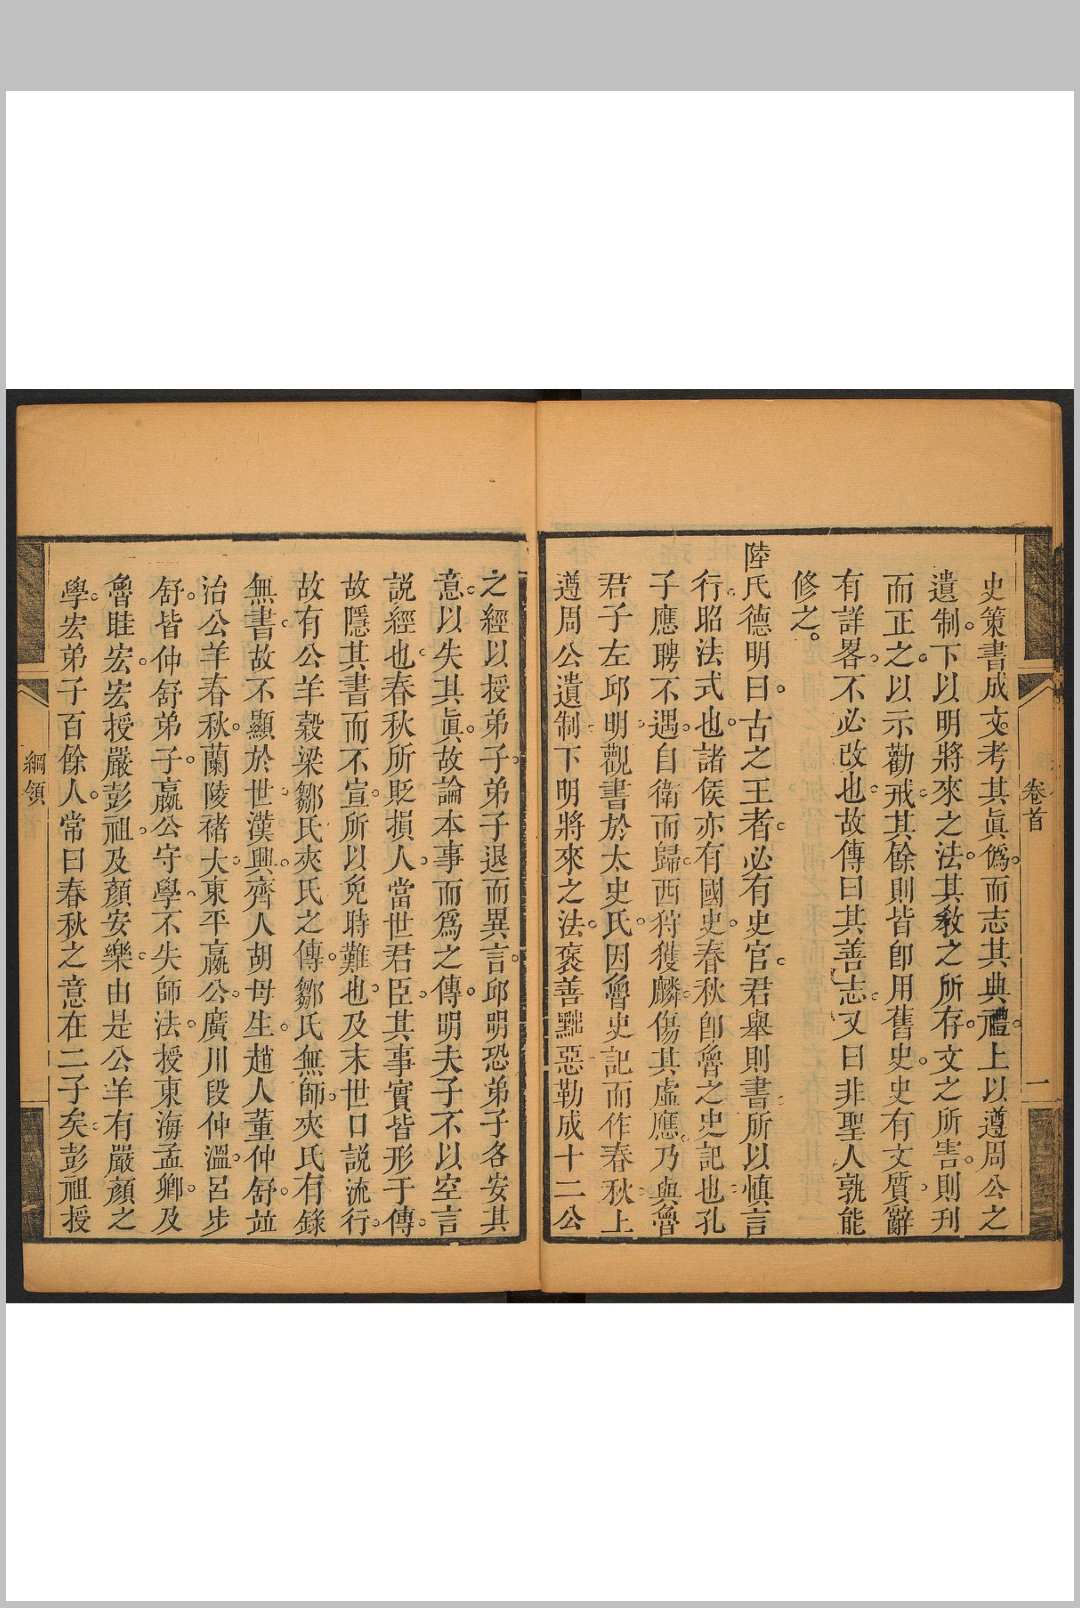 卷首
二
史策書成文考其眞僞而志其典禮上以遵周公之
遺制下以明將來之法其敎之所存文之所害則刋
而正之以示勸戒其餘則皆卽用舊史史有文質辭
有詳畧不必改也故傳曰其善志又曰非聖人孰能
修之。
陸氏德明曰古之王者必有史官君舉則書所以愼言
行昭法式也諸侯亦有國史春秋卽魯之史記也孔
子應聘不遇自衛而歸西狩獲麟傷其虛應乃與魯
君子左邱明觀書於太史氏因魯史記而作春秋上
遵周公遺制下明將來之法褒善黜惡勒成十二公
之經以授弟子弟子退而異言邱明恐弟子各安其
意以失其眞故論本事而爲之傳明夫子不以空言
説經也春秋所貶損人當世君臣其事實皆形于傳
故隱其書而不宣所以免時難也及末世口説流行
故有公羊穀梁鄒氏夾氏之傳鄒氏無師夾氏有錄
無書故不顯於世漢興齊人胡母生趙人董仲舒竝
治公羊春秋蘭陵褚大東平嬴公廣川段仲溫呂步
舒皆仲舒弟子嬴公守學不失師法授東海孟卿及
魯眭宏宏授嚴彭祖及顏安樂由是公羊有嚴顏之
學宏弟子百餘人常曰春秋之意在二子矣彭祖授
綱領